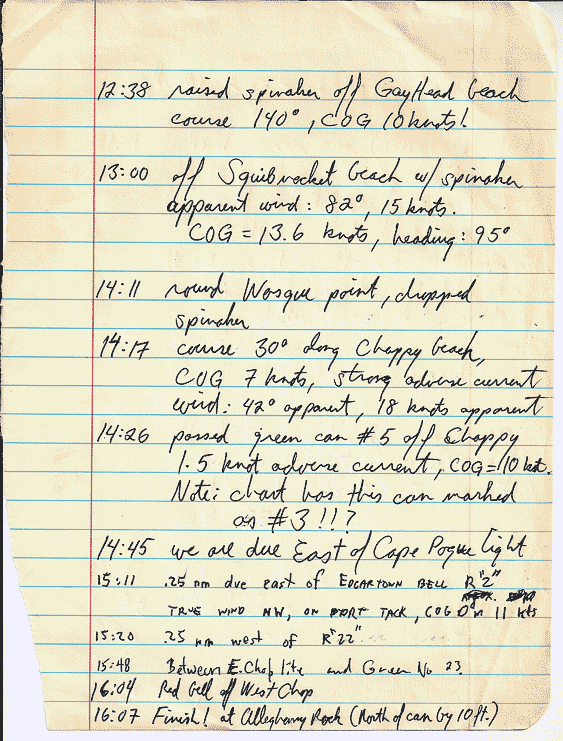 12:38 raised spinaker off GayHead beach
course 140°, COG 10 knots!
13:00 off Squibnocket beach w/ spinaker
apparent wind: 82°, 15 knots.
COG = 13.6 knots, heading: 95°
14:11 round Wasque point, dropped
spinaker
14:17 course 30° along Chappy beach,
COG 7 knots, strong adverse current
wind: 42° apparent, 18 knots apparent
14:26 passed green can #5 off Chappy
1.5 knot adverse current, COG=10 knt.
Note: chart has this can marked
as #3!!?
14:45 we are due East of Cape Pogue Light
15:11 .25 nm due east of EDGARTOWN BELL R"2"
TRUE WIND NW, ON PORT TACK, COG 11 kts
15:20 .25 nm west of R"22"
15:48 Between E. Chop lite and Green No 23.
16:04 Red Bell off West Chop
16:07 Finish! at Alleghany Rock (North of can by 10ft.)